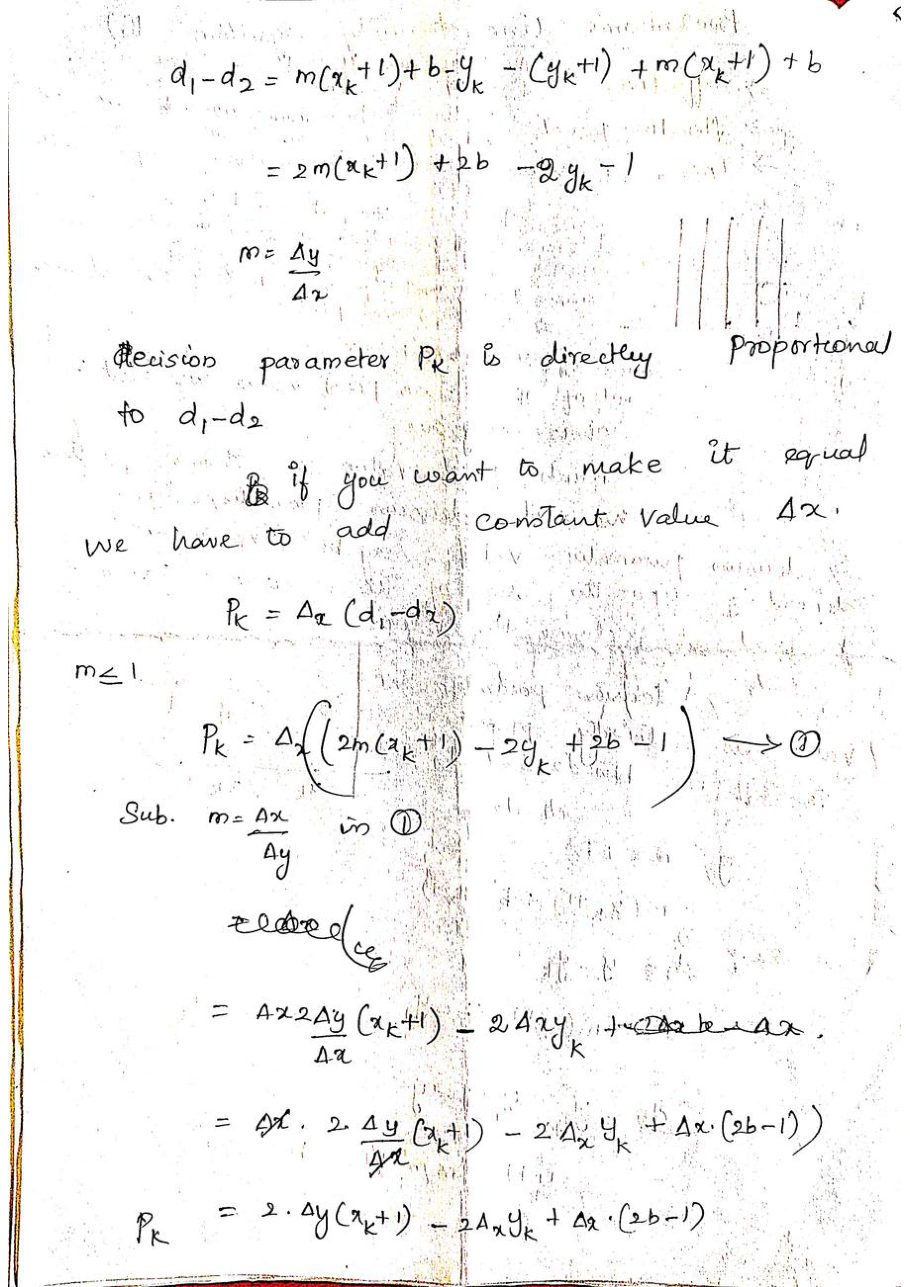 d₁-d₂ = m(xₖ+1)+b-yₖ - (yₖ+1) + m(xₖ+1) + b
= 2m(xₖ+1) + 2b - 2yₖ - 1
m = Δy/Δx
decision parameter Pₖ is directly proportional
to d₁-d₂
if you want to make it equal
we have to add constant value Δx.
Pₖ = Δx (d₁-d₂)
m≤1.
Pₖ = Δx((2m(xₖ+1) - 2yₖ + 2b - 1) → ①
Sub. m = Δx/Δy in ①
= Δx2Δy/Δx (xₖ+1) - 2Δxyₖ
= Δx . 2. Δy/Δx (xₖ+1) - 2Δx yₖ + Δx.(2b-1))
Pₖ = 2.Δy(xₖ+1) - 2Δxyₖ + Δx.(2b-1)